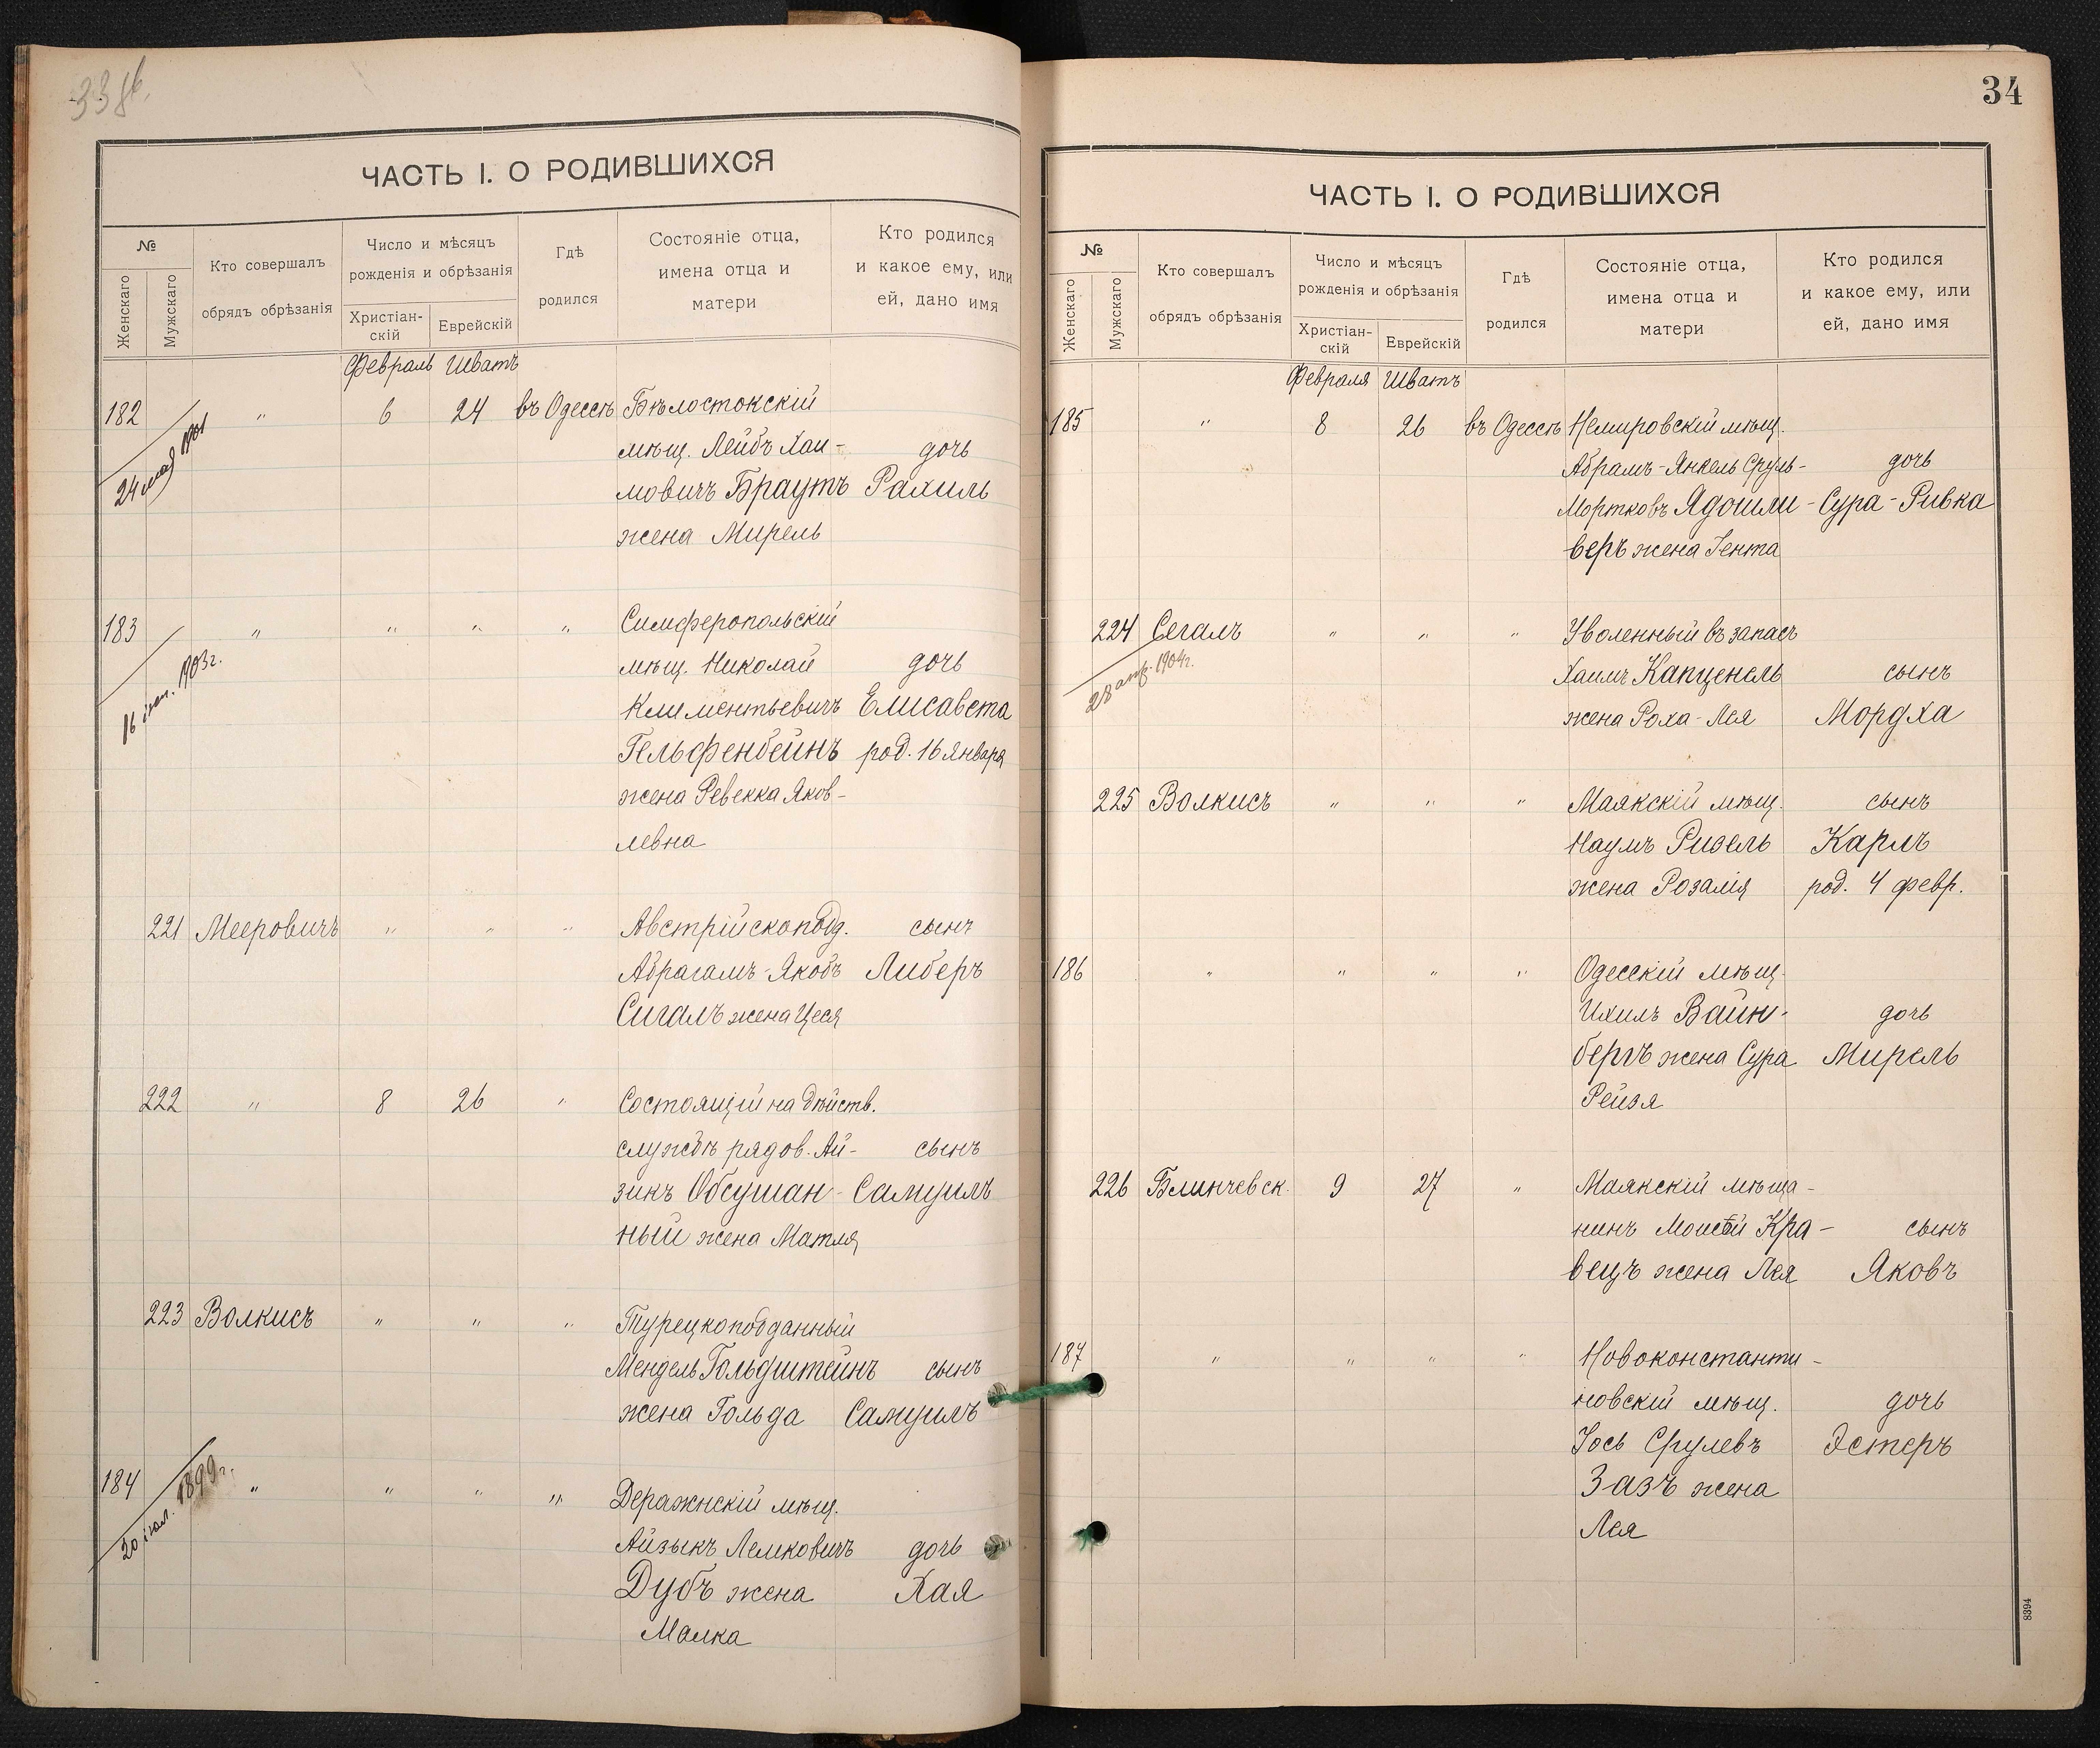 33 об.
ЧАСТЬ I. О РОДИВШИХСЯ
№
Женскаго
Мужскаго
Кто совершалъ
обрядъ обрѣзанія
Число и мѣсяцъ
рожденія и обрѣзанія
Христіан-
скій
Еврейскій
Гдѣ
родился
Состояніе отца,
имена отца и
матери
Кто родился
и какое ему, или
ей, дано имя
Февраль Шватъ
182 " 6 24 въ Одессѣ Бѣлостокскій
24 мая 1901
мѣщ. Лейбъ Хаи- дочь
мовичъ Браутъ Рахиль
жена Мирель
183 " " " " Симферопольскій
16 1903г.
мѣщ. Николай дочь
Климентьевичъ Елисавета
Гельфенбейнъ род. 16 Января
жена Ревекка Яков-
левна
221 Мееровичъ " " " Австрійскопод. сынъ
Абрагамъ-Якобъ Либеръ
Сигалъ жена Цеся
222 " 8 26 " Состоящій на дѣйств.
службѣ рядов. Ай- сынъ
зикъ Обсушан- Самуилъ
ный жена Матля
223 Волкисъ " " " Турецкоподданный
Мендель Гольдштейнъ сынъ
жена Гольда Самуилъ
184 " " " " Деражнскій мѣщ.
20 1899г.
Айзыкъ Лемковичъ дочь
Дубъ жена Хая
Малка
34
ЧАСТЬ I. О РОДИВШИХСЯ
№
Женскаго
Мужскаго
Кто совершалъ
обрядъ обрѣзанія
Число и мѣсяцъ
рожденія и обрѣзанія
Христіан-
скій
Еврейскій
Гдѣ
родился
Состояніе отца,
имена отца и
матери
Кто родился
и какое ему, или
ей, дано имя
Февраля Шватъ
185 " 8 26 въ Одессѣ Немировскій мѣщ.
Абрамъ-Янкель Сруль- дочь
Мортковъ Ядошли- Сура-Ривка
веръ жена Гента
224 Сегалъ " " " Уволенный въ запасъ
28 апр. 1904г.
Хаимъ Капценель сынъ
жена Роха-Лея Мордха
225 Волкисъ " " " Маякскій мѣщ. сынъ
Наумъ Ризель Карлъ
жена Розалія род. 4 февр.
186 " " " " Одесскій мѣщ.
Ихилъ Вайн- дочь
бергъ жена Сура Мирель
Рейзя
226 Блинчевск. 9 27 " Маякскій мѣща-
нинъ Моисей Кра- сынъ
вецъ жена Лея Яковъ
187 " " " " Новоконстанти-
новскій мѣщ. дочь
Іось Срулевъ Эстеръ
Зазъ жена
Лея
8394